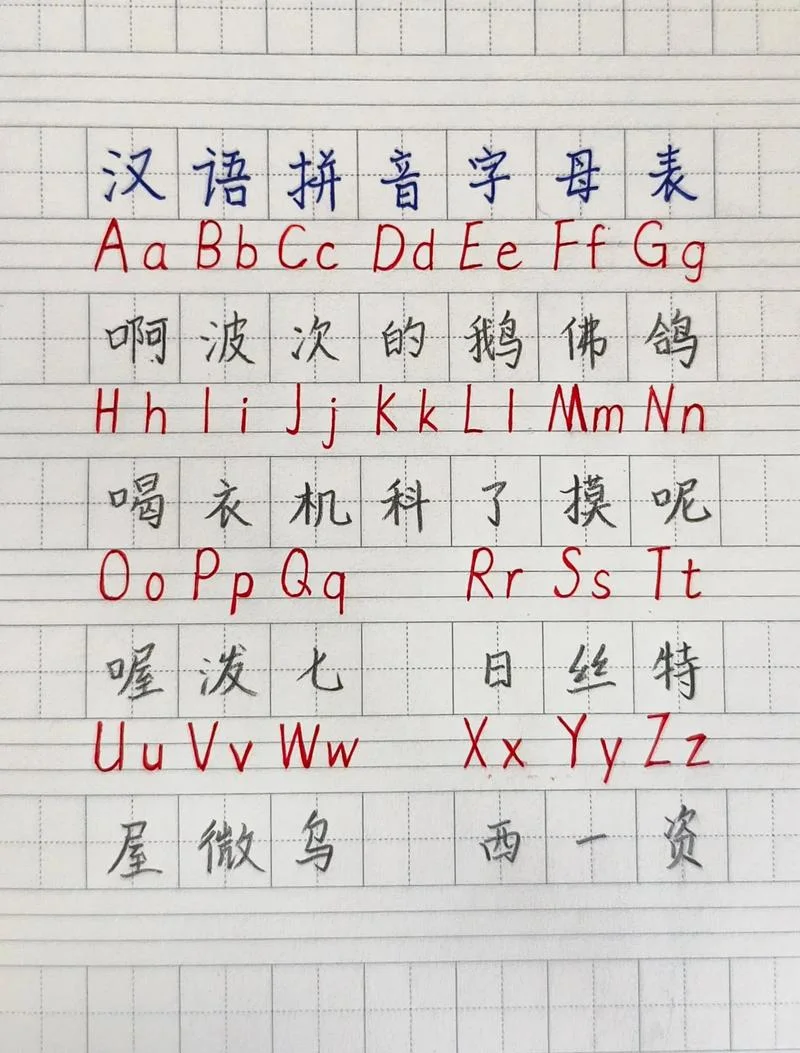 汉语拼音字母表
Aa Bb Cc Dd Ee Ff Gg
啊波次的鹅佛鸽
Hh Ii Jj Kk Ll Mm Nn
喝衣机科了摸呢
Oo Pp Qq Rr Ss Tt
喔泼七 日丝特
Uu Vv Ww Xx Yy Zz
屋微乌 西一资